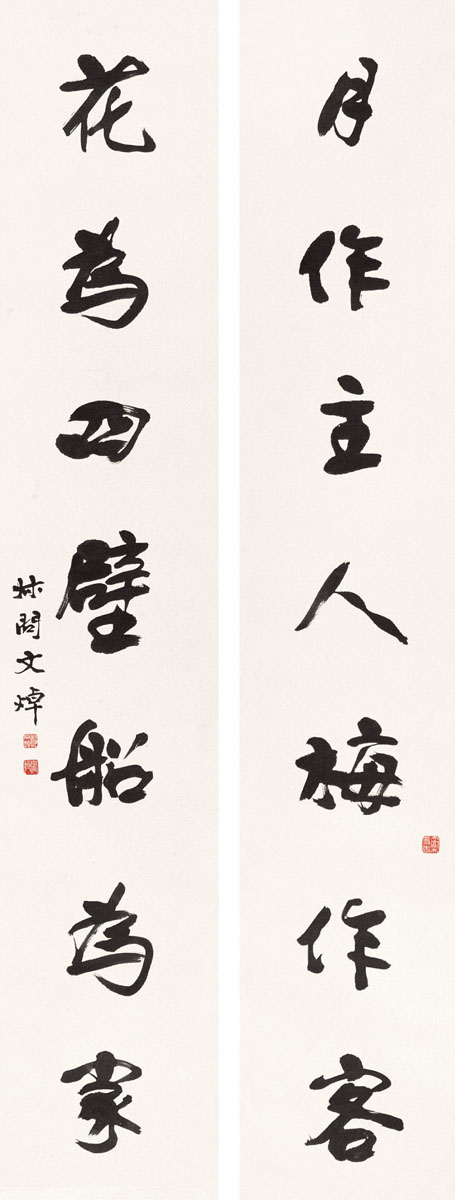 月作主人梅作客
花為四壁船為家
叔問文焯